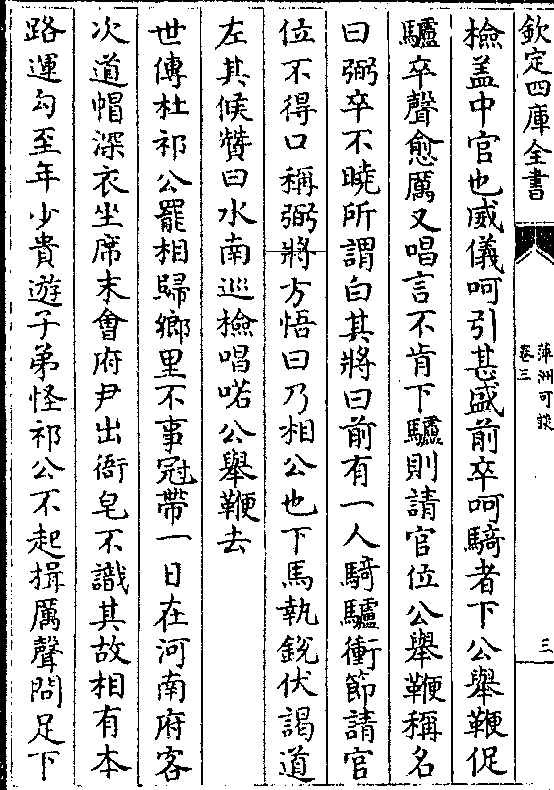 欽定四庫全書
萍洲可談
卷三
三
檢盖中官也威儀呵引甚盛前卒呵騎者下公舉鞭促
驢卒聲愈厲又唱言不肯下驢則請官位公舉鞭稱名
曰弼卒不曉所謂白其將曰前有一人騎驢衝節請官
位不得口稱弼將方悟曰乃相公也下馬執銳伏謁道
左其候贊曰水南巡檢唱喏公舉鞭去
世傳杜祁公罷相歸鄉里不事冠帶一日在河南府客
次道帽深衣坐席末會府尹出衙皂不識其故相有本
路運勾至年少貴遊子弟怪祁公不起揖厲聲問足下